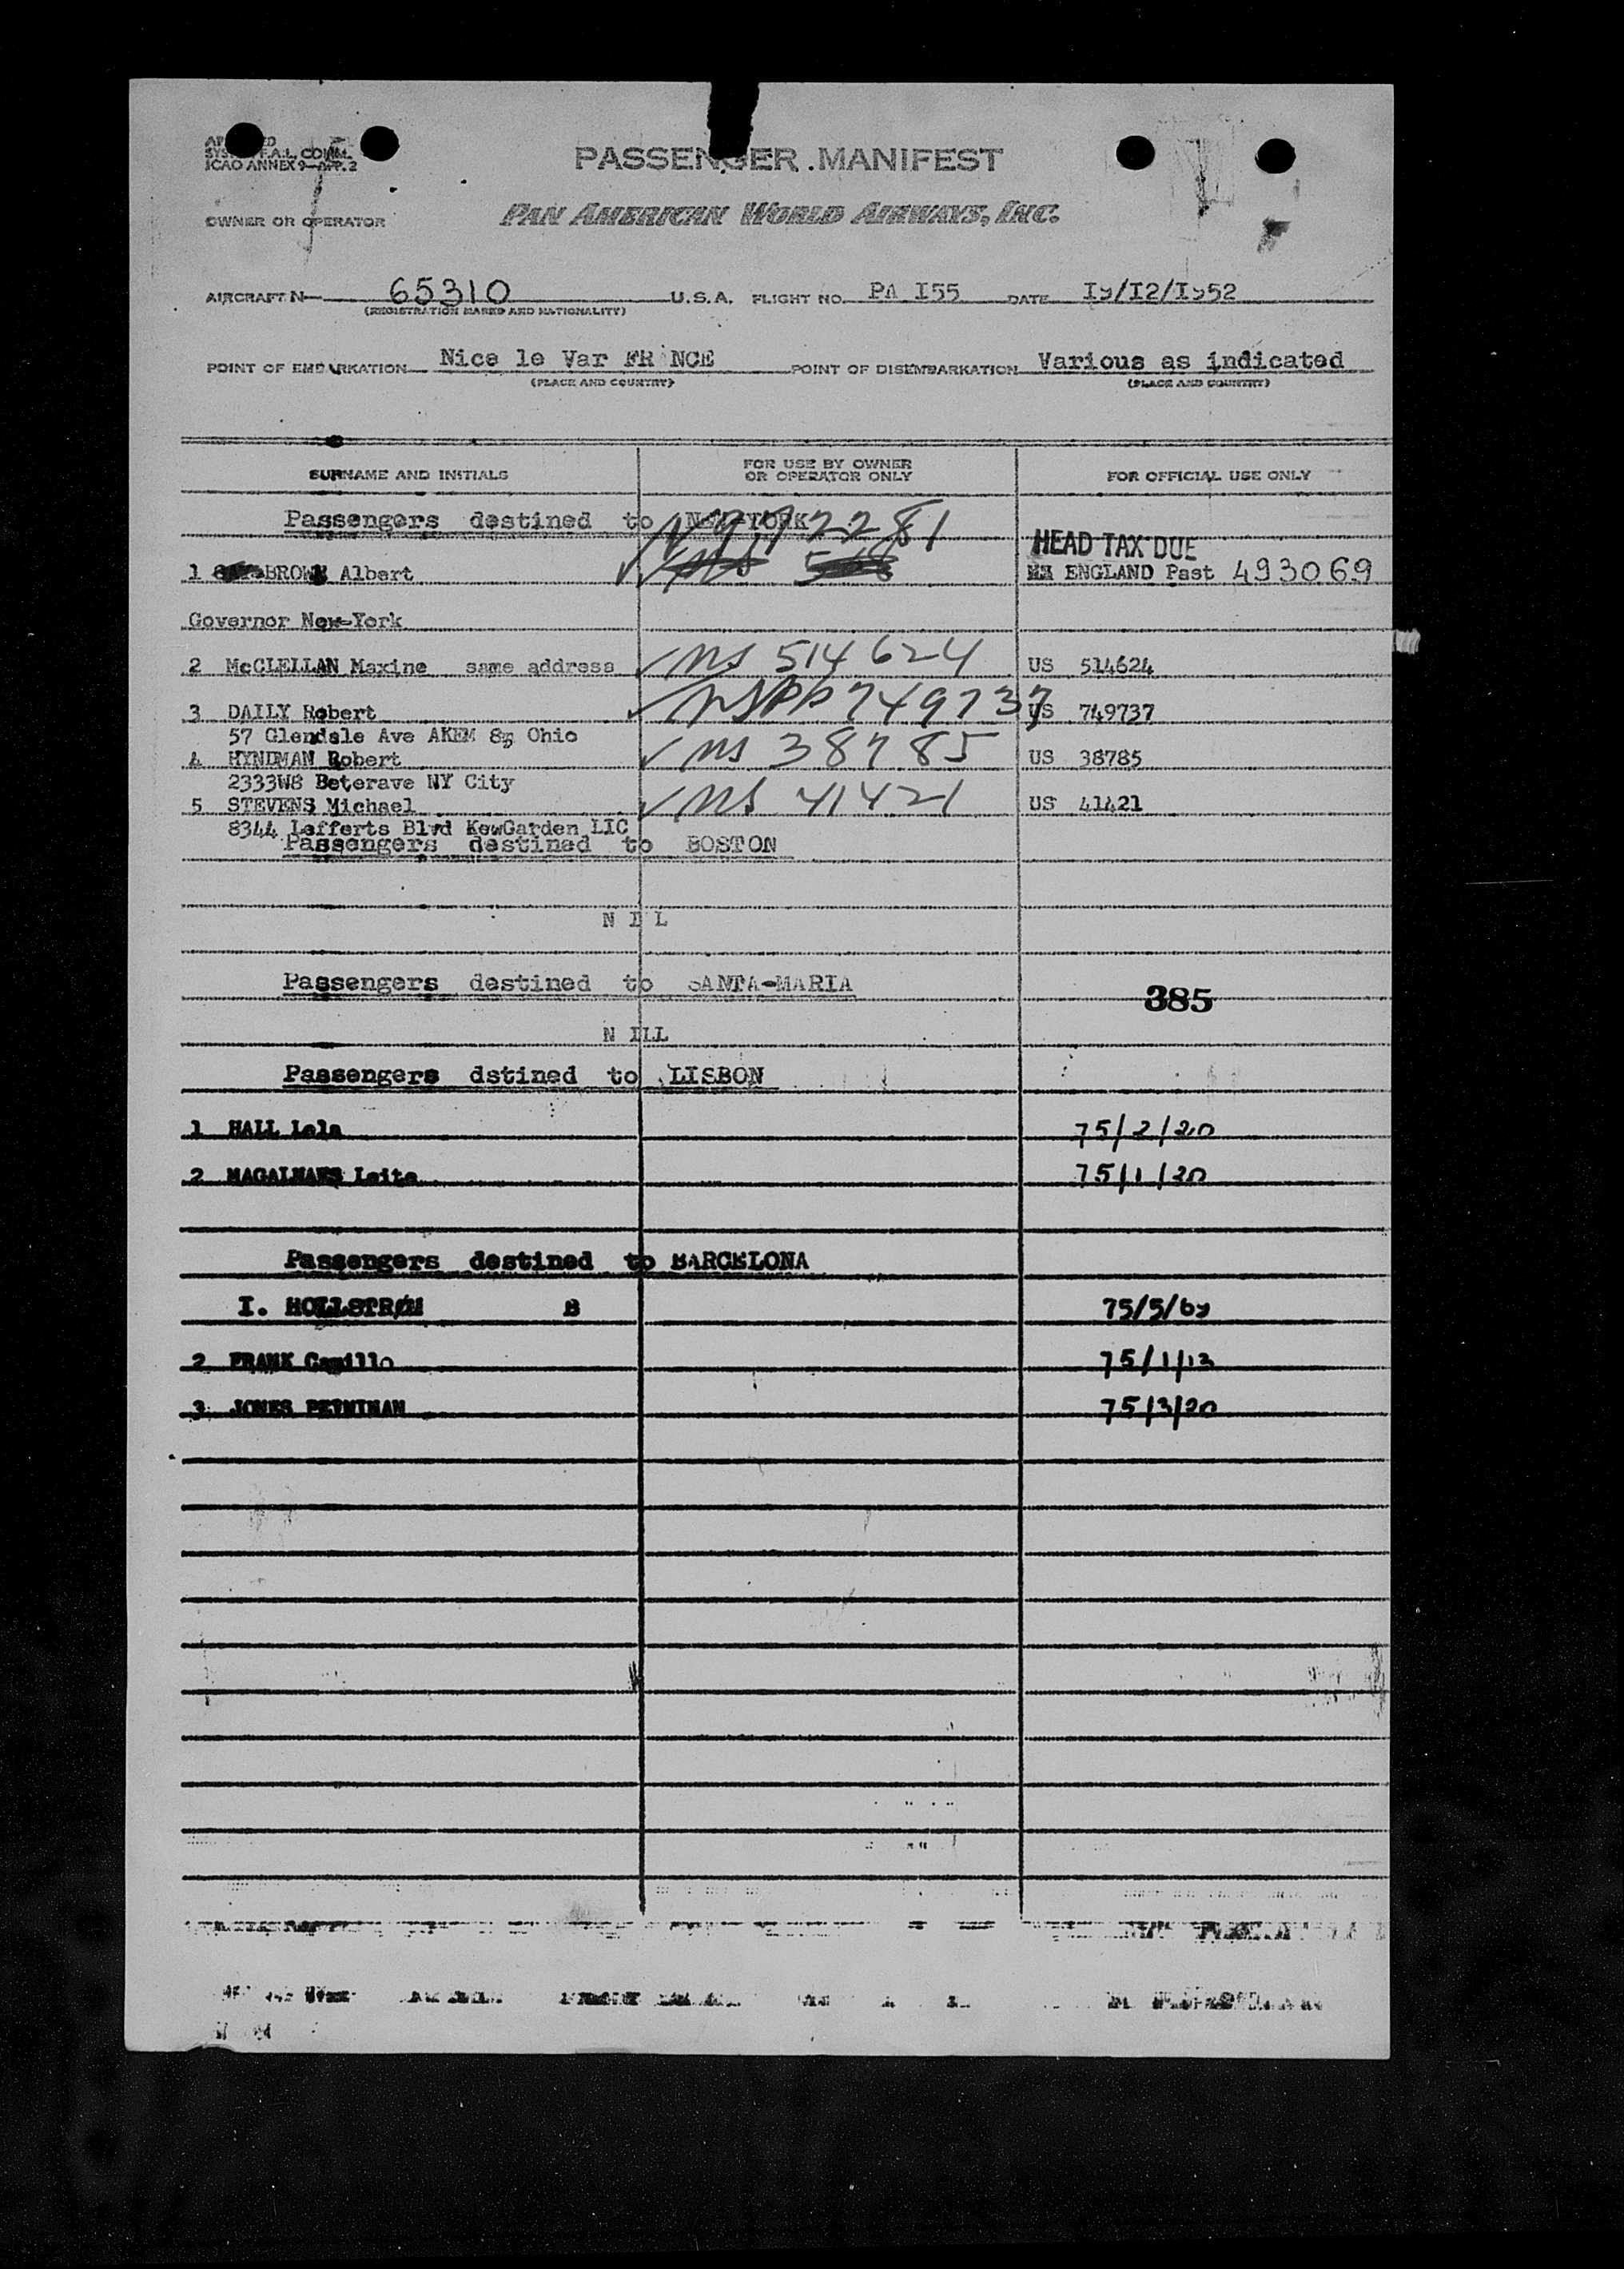 JCAO ANNEX 9-APP. 2
PASSENGER MANIFEST
OWNER OR OPERATOR PAN AMERICAN WORLD AIRWAYS, INC.
AIRCRAFT N 65310 U.S.A. FLIGHT NO. PA I55 DATE I9/I2/I952
(REGISTRATION MARKS AND NATIONALITY)
POINT OF EMBARKATION Nice le Var FR NCE POINT OF DISEMBARKATION Various as indicated
(PLACE AND COUNTRY) (PLACE AND COUNTRY)
SURNAME AND INITIALS FOR USE BY OWNER OR OPERATOR ONLY FOR OFFICIAL USE ONLY
Passengers destined to NEW-YORK
HEAD TAX DUE
1 BROWN Albert ENGLAND Past 493069
Governor New-York
2 McCLELLAN Maxine same address ✓ NS 514624 US 514624
3 DAILY Robert ✓ 749737 US 749737
57 Glendale Ave AKEM 85 Ohio
4 HYNDMAN Robert ✓ NS 38785 US 38785
2333W8 Beterave NY City
5 STEVENS Michael ✓ NS 41421 US 41421
8344 Lefferts Blvd KewGarden LIC
Passengers destined to BOSTON
N I L
Passengers destined to SANTA-MARIA
385
N ILL
Passengers dstined to LISBON
1 HALL Lela 75/2/20
2 MAGALHAES Leite 75/1/20
Passengers destined to BARCELONA
I. HOLLSTRØM B 75/5/69
2 FRANK Camillo 75/1/13
3 JONES 75/3/20